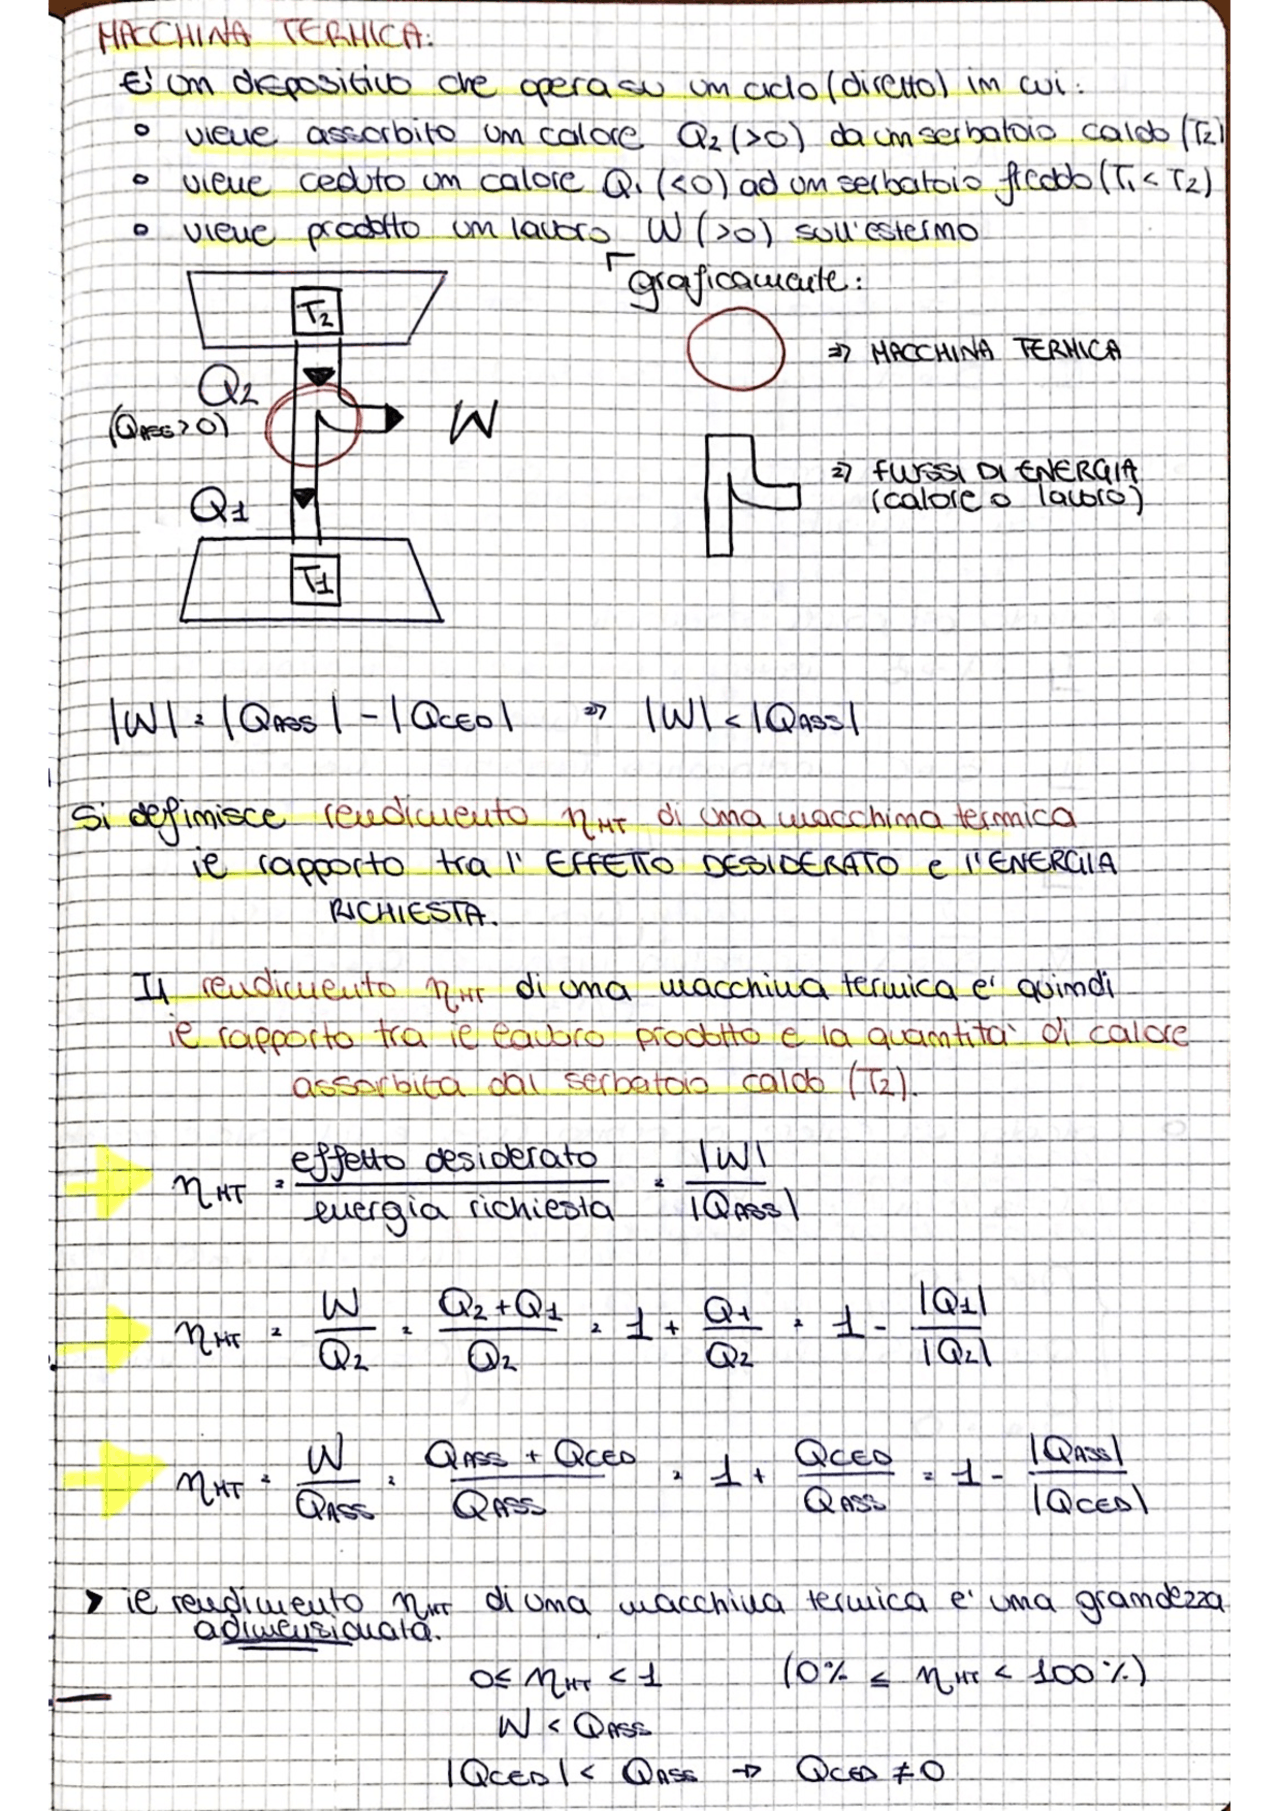 MACCHINA TERMICA:
E' un dispositivo che opera su un ciclo (diretto) in cui:
° viene assorbito un calore Q2 (>0) da un serbatoio caldo (T2)
° viene ceduto un calore Q1 (<0) ad un serbatoio freddo (T1 < T2)
° viene prodotto un lavoro W (>0) sull'esterno
graficamente:
T2
⇒ MACCHINA TERMICA
Q2
(QASS>0)
W
⇒ FLUSSI DI ENERGIA
(calore o lavoro)
Q1
T1
|W| = |QASS| - |QCED| ⇒ |W| < |QASS|
Si definisce rendimento ηMT di una macchina termica
il rapporto tra l'EFFETTO DESIDERATO e l'ENERGIA
RICHIESTA.
Il rendimento ηMT di una macchina termica e' quindi
il rapporto tra il lavoro prodotto e la quantita' di calore
assorbita dal serbatoio caldo (T2).
ηMT = effetto desiderato / energia richiesta = |W| / |QASS|
ηMT = W / Q2 = Q2 + Q1 / Q2 = 1 + Q1 / Q2 = 1 - |Q1| / |Q2|
ηMT = W / QASS = QASS + QCED / QASS = 1 + QCED / QASS = 1 - |QASS| / |QCED|
> il rendimento ηMT di una macchina termica e' una grandezza
adimensionata.
0 ≤ ηMT < 1 (0% ≤ ηMT < 100%)
W < QASS
|QCED| < QASS → QCED ≠ 0